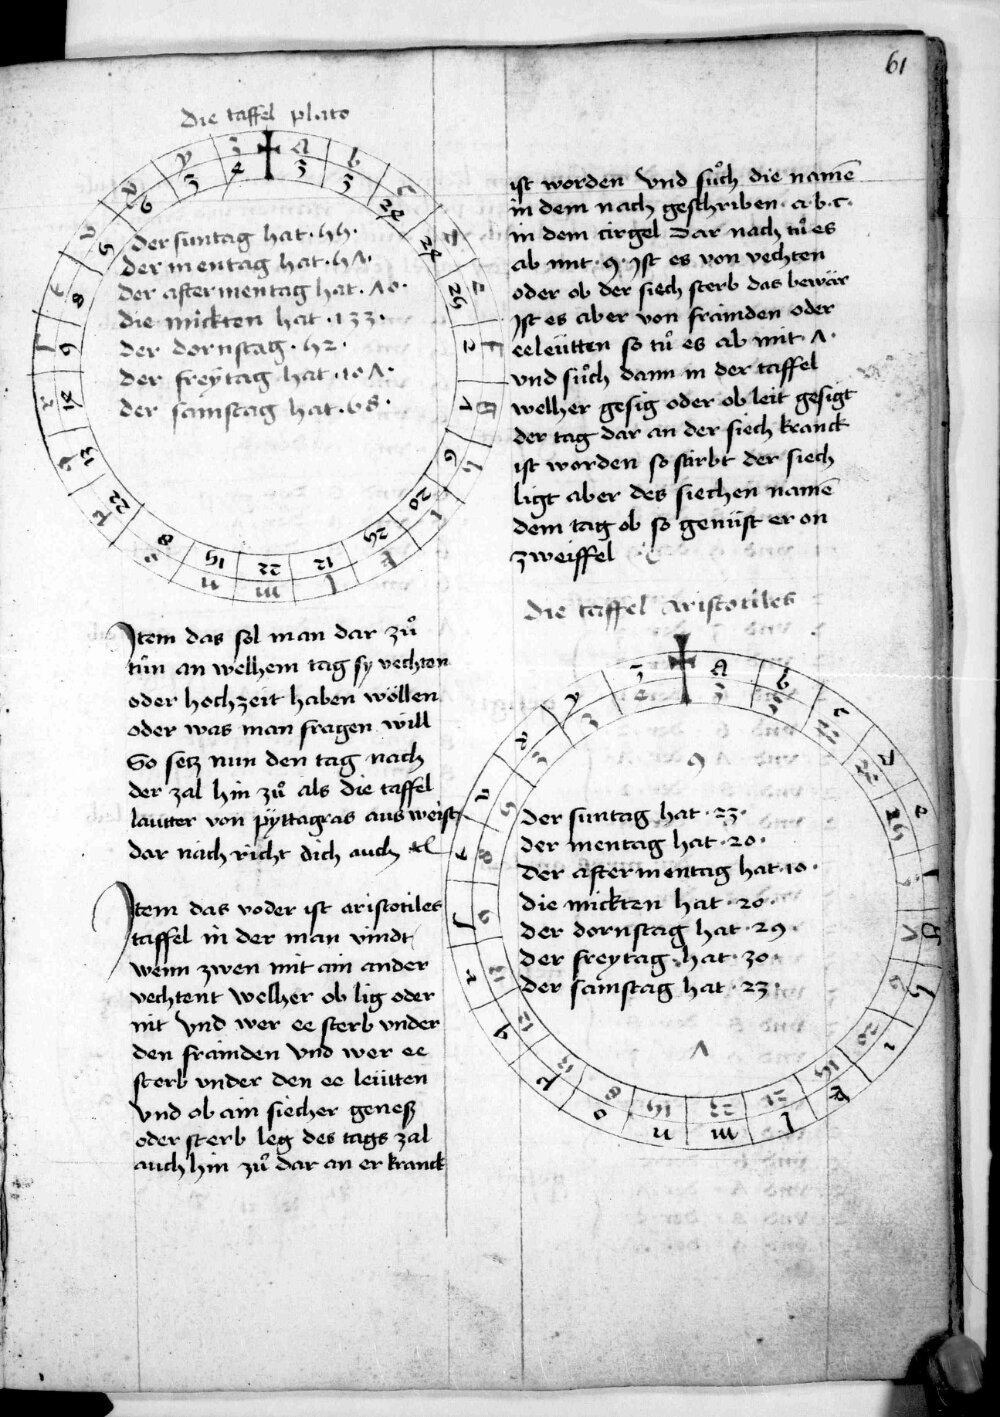 61
die taffel plato
der suntag hat · 55 ·
der mentag hat · 57 ·
der aftermentag hat · 70 ·
die mickten hat · 133 ·
der dornstag · 52 ·
der freÿtag hat · 107 ·
der samstag hat · 68 ·
Jtem das sol man dar zů
tůn an welhem tag sy vechten
oder hochzeit haben wöllen
oder was man fragen will
So setz nun den tag nach
der zal hin zů als die taffel
lautter von pyttagras aus weist
dar nach richt dich auch
Jtem das voder ist aristotiles
taffel in der man vindt
wenn zwen mit ain ander
vechtent welher ob lig oder
nit vnd wer ee sterb vnder
den främden vnd wer ee
sterb vnder den ee leütten
vnd ob ain siecher geneß
oder sterb leg des tags zal
auch hin zů dar an er kranck
ist worden vnd sůch die namē
in dem nach geschriben · a · b · c ·
in dem cirgel Dar nach tů es
ab mit · 9 · Jst es von vechten
oder ob der siech sterb das bewär
Jst es aber von främden oder
eeleütten so tů es ab mit 7 ·
vnd sůch dann in der taffel
welher gesig oder ob leit gesigt
der tag dar an der siech kranck
ist worden so stirbt der siech
ligt aber des siechen namē
dem tag ob so genüst er on
zweiffel
die taffel aristotiles
9
der suntag hat · 23 ·
der mentag hat · 20 ·
der aftermentag hat · 10 ·
die mickten hat · 20 ·
der dornstag hat · 29 ·
der freytag hat · 30 ·
der samstag hat · 23 ·
7